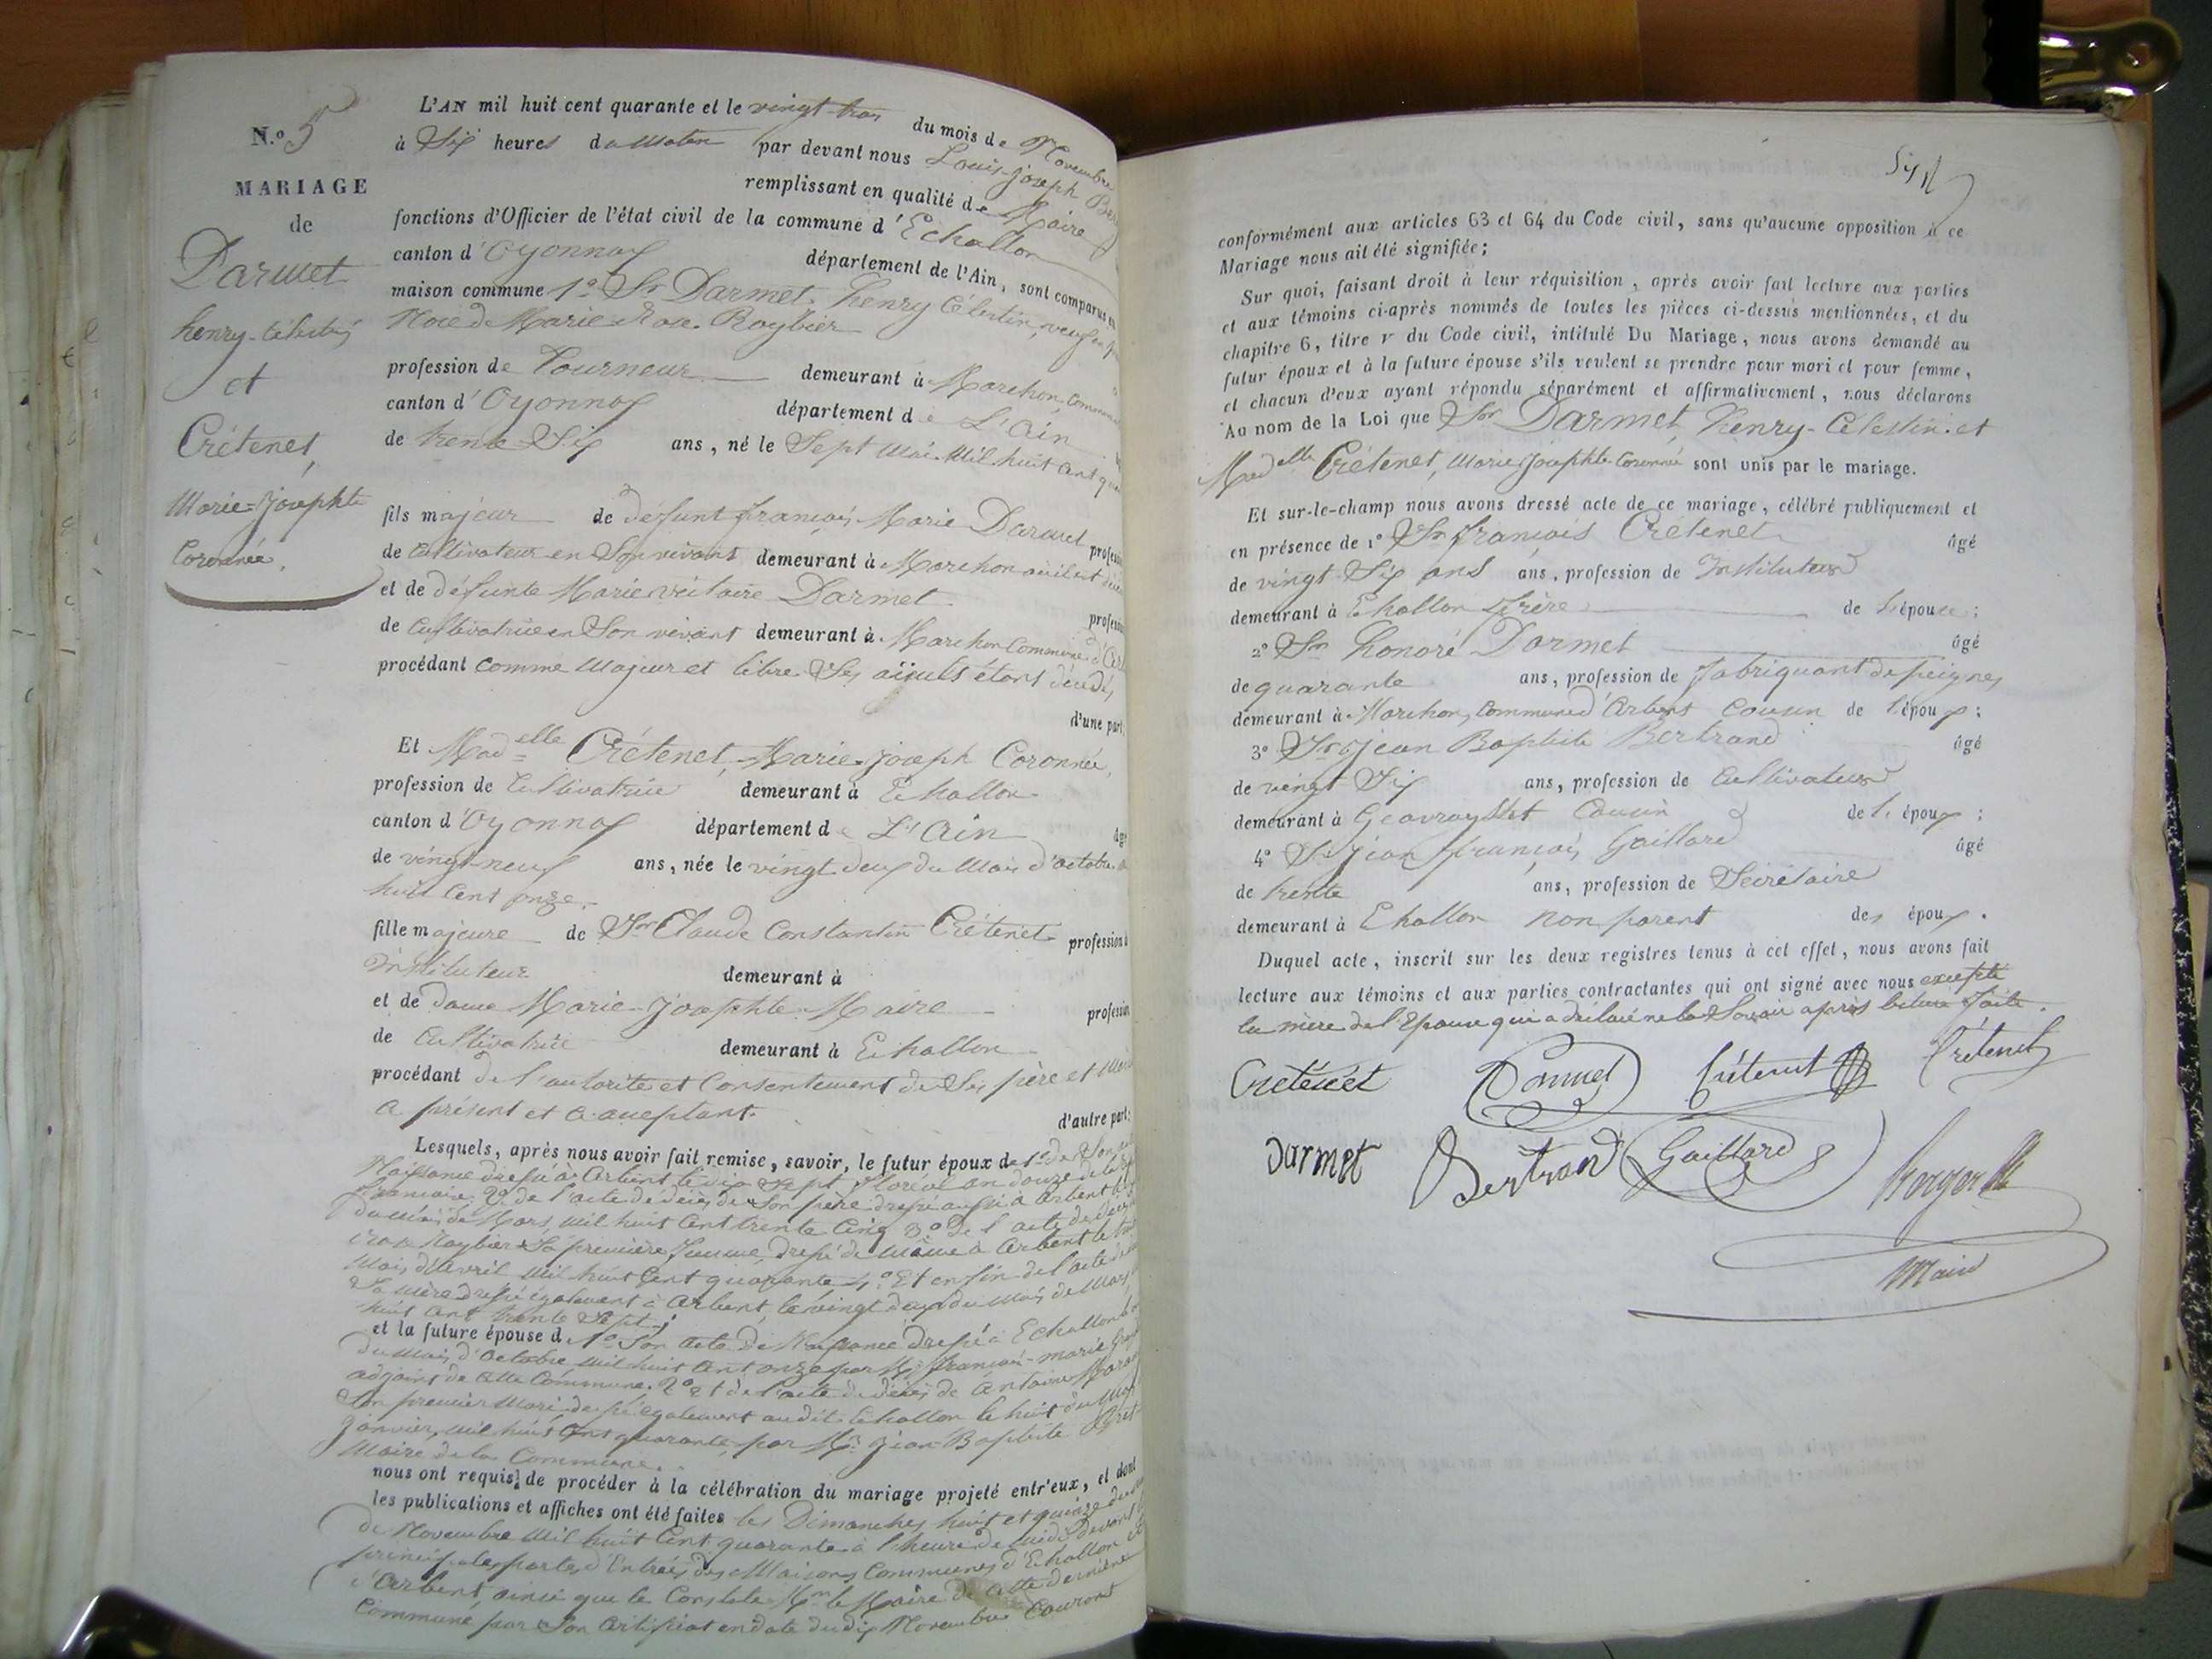 N.o 5
MARIAGE
de
Darmet
henry-Célestin
et
Crétenet,
Marie-Josephte
Coronnée.
L'AN mil huit cent quarante et le vingt-trois du mois de Novembre
à Six heures du Matin par devant nous Louis-joseph
remplissant en qualité de Maire
fonctions d'Officier de l'état civil de la commune d'Echallon
canton d'Oyonnax département de l'Ain, sont comparus en
maison commune 1º Sr Darmet, henry Célestin, veuf en
Noce de Marie Rose Roybier
profession de Tourneur demeurant à Marchon, Commune
canton d'Oyonnax département de L'Ain
de trente Six ans, né le Sept Mai Mil huit Cent
fils majeur de défunt françois Marie Darmet
de Cultivateur en Son vivant demeurant à Marchon où il est
et de défunte Marie victoire Darmet
de Cultivatrice en Son vivant demeurant à Marchon Commune d'
procédant comme Majeur et libre Ses aïeuls étant décédés
d'une part;
Et Madelle Crétenet, Marie joseph Coronnée,
profession de Cultivatrice demeurant à Echallon
canton d'Oyonnax département de L'Ain
de vingt-neuf ans, née le vingt deux du Mois d'octobre
huit Cent onze.
fille majeure de Sr Claude Constantin Crétenet profession
Instituteur demeurant à
et de dame Marie-Josephte Maire
de Cultivatrice demeurant à Echallon
procédant de l'autorité et Consentement de Ses père et
a présent et a acceptant. d'autre part;
Lesquels, après nous avoir fait remise, savoir, le futur époux de 1º de Son
Naissance dressé à Arbent le dix Sept floréal an douze de la
2º de l'acte de décès de Son père dressé aussi à Arbent
du mois de Mars Mil huit Cent trente Cinq 3º de l'acte de décès
Roybier Sa première femme, dressé de même à Arbent le
Mois d'Avril Mil huit Cent quarante 4º Et enfin de l'acte de
Sa mère dressé également à Arbent, le vingt deux du Mois de Mars
huit Cent trente Sept;
et la future épouse d. 1º Son acte de Naissance dressé à Echallon
du Mois d'Octobre Mil huit Cent onze par Mr françois-marie
adjoint de cette Commune. 2º Et de l'acte de décès de Antoine
Son premier Mari dressé également au dit Echallon le huit du Mois
Janvier, Mil huit Cent quarante, par Mr jean-Baptiste
Maire de la Commune.
nous ont requis de procéder à la célébration du mariage projeté entr'eux, et dont
les publications et affiches ont été faites les Dimanches huit et quinze du
de Novembre Mil huit Cent quarante à l'heure de midi devant
principales portes d'Entrées des Maisons Communes d'Echallon et
d'Arbent, ainsi que le Constate Mr le Maire de cette dernière
Commune par Son Certificat en date du dix Novembre Courant
conformément aux articles 63 et 64 du Code civil, sans qu'aucune opposition à ce
Mariage nous ait été signifiée;
Sur quoi, faisant droit à leur réquisition, après avoir fait lecture aux parties
et aux témoins ci-après nommés de toutes les pièces ci-dessus mentionnées, et du
chapitre 6, titre v du Code civil, intitulé Du Mariage, nous avons demandé au
futur époux et à la future épouse s'ils veulent se prendre pour mari et pour femme,
et chacun d'eux ayant répondu séparément et affirmativement, nous déclarons
Au nom de la Loi que Sr Darmet, henry-Célestin et
Madelle Crétenet, Marie Josephte Coronnée sont unis par le mariage.
Et sur-le-champ nous avons dressé acte de ce mariage, célébré publiquement et
en présence de 1º Sr françois Crétenet âgé
de vingt Six ans ans, profession de Instituteur
demeurant à Echallon frère de l'épouse;
2º Sr honoré Darmet âgé
de quarante ans, profession de fabriquant de peignes
demeurant à Marchon, Commune d'Arbent Cousin de l'époux;
3º Sr jean Baptiste Bertrand âgé
de vingt Six ans, profession de Cultivateur
demeurant à Geovreysset Cousin de l'époux;
4º Sr jean françois Gaillard âgé
de trente ans, profession de Secrétaire
demeurant à Echallon non parent des époux.
Duquel acte, inscrit sur les deux registres tenus à cet effet, nous avons fait
lecture aux témoins et aux parties contractantes qui ont signé avec nous excepté
la mère de l'Epouse qui a déclaré ne le Savoir après lecture faite.
Crétenet Darmet Crétenet Crétenet
Darmet Bertrand Gaillard
Maire